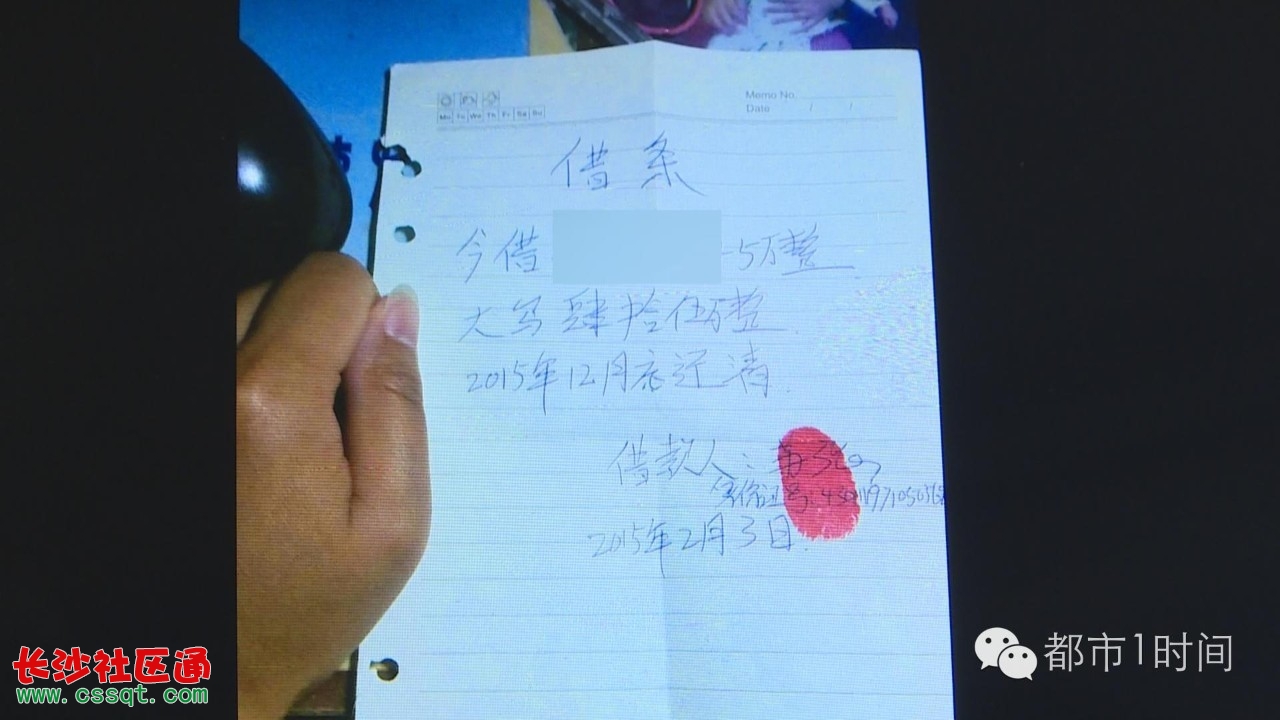 Memo No.
Date / /
Mo Tu We Th Fr Sa Su
借条
今借 5万整
大写肆拾伍万整
2015年12月底还清
借款人:
身份证号:
2015年2月3日
长沙社区通
www.cssqt.com
都市1时间